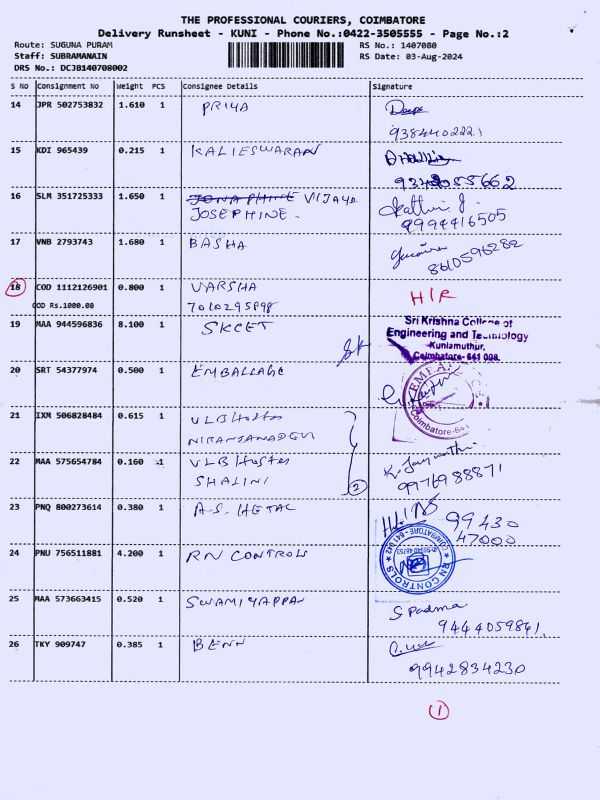 THE PROFESSIONAL COURIERS, COIMBATORE
Delivery Runsheet - KUNI - Phone No.:0422-3505555 - Page No.:2
Route: SUGUNA PURAM RS No.: 1407080
Staff: SUBRAMANAIN RS Date: 03-Aug-2024
DRS No.: DCJB140708002
S No Consignment No Weight PCS Consignee Details Signature
14 JPR 502753832 1.610 1 PRIYA
9384402221
15 KDI 965439 0.215 1 KALIESWARAN
16 SLM 351725333 1.650 1 VIJAYA
JOSEPHINE.
9994416505
17 VNB 2793743 1.680 1 BASHA
8610596282
18 COD 1112126901 0.800 1 VARSHA
COD Rs.1000.00 7010295898 H/R
19 MAA 944596836 8.100 1 SKCET
Sri Krishna College of
Engineering and Technology
Kuniamuthur,
Coimbatore- 641 008.
20 SRT 54377974 0.500 1 EMBALLAGE
21 IXM 506828484 0.615 1 VLB Hostes
NIRANJANADEVI
22 MAA 575654784 0.160 1 VLB Hostes
SHALINI
2
9976988871
23 PNQ 800273614 0.380 1 A.S. HETAL
99430
47000
24 PNU 756511881 4.200 1 RN CONTROLS
RN CONTROLS
COIMBATORE - 641 042
25 MAA 573663415 0.520 1 SWAMIYAPPAN
S Padma
9444059861.
26 TKY 909747 0.385 1 BENN
9942834230
1